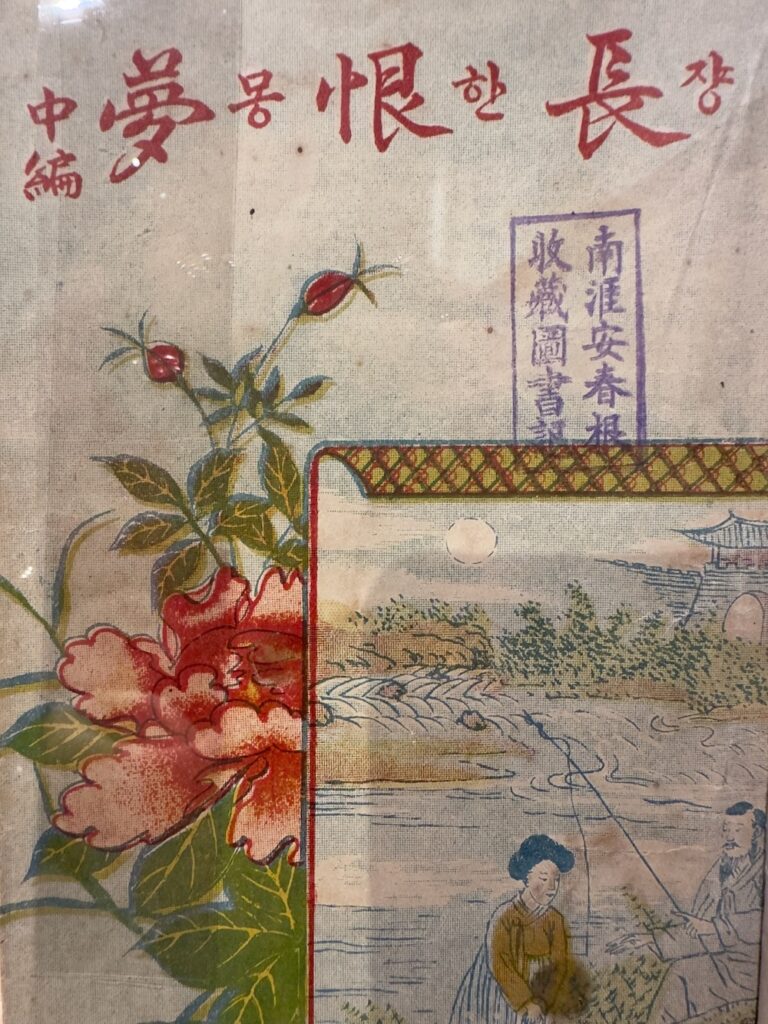 쟝長한恨몽夢
中編
南涯安春根
收藏圖書記